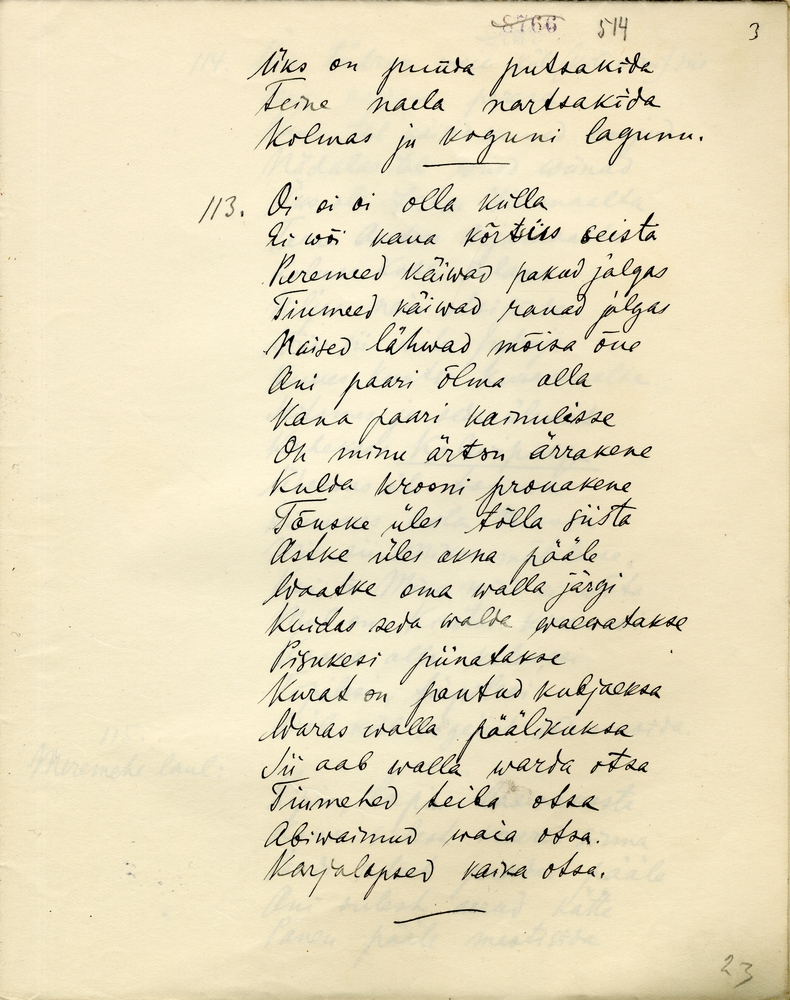 8766 514 3
Üks on puuda putsakida
Teine naela nartsakida
Kolmas ju koguni lagunu.
113. Oi ei oi olla külla
Ei wõi kana kõrtsis seista
Peremeed käiwad pakud jalgas
Tiumeed käiwad rauad jalgas
Naised lähwad mõisa õue
Ani paari õlma alla
Kana paari kainulisse
Oh minu ärtsu ärrakene
Kulda krooni prouakene
Tõuske üles tõlla siista
Astke üles akna pääle
Waatke oma walla järgi
Kuidas seda walda waewatakse
Pisukesi piinatakse
Kurat on pantud kubjaeksa
Waras walla päälikuksa
Sii aab walla warda otsa
Tiumehed teiba otsa
Abiwaimud waia otsa.
Karjalapsed kaika otsa.
23